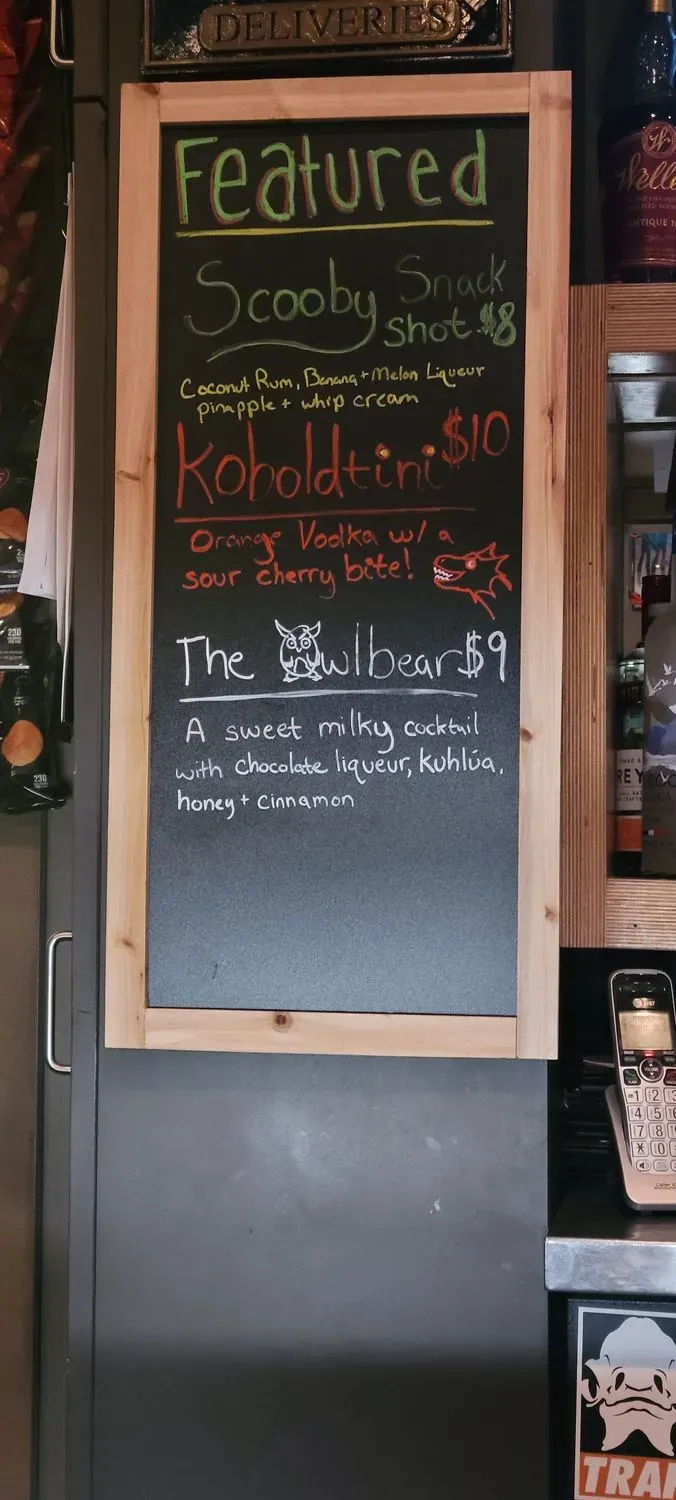 DELIVERIES
Featured
Scooby Snack
Shot $8
Coconut Rum, Banana + Melon Liqueur
pinapple + whip cream
Koboldtini $10
Orange Vodka w/ a
sour cherry bite!
The Owlbear $9
A sweet milky cocktail
with chocolate liqueur, Kuhlúa,
honey + cinnamon
W
Welle
ANTIQUE
230
230
REY
AT&T
1 2 3
4 5 6
7 8
* 0
TRA